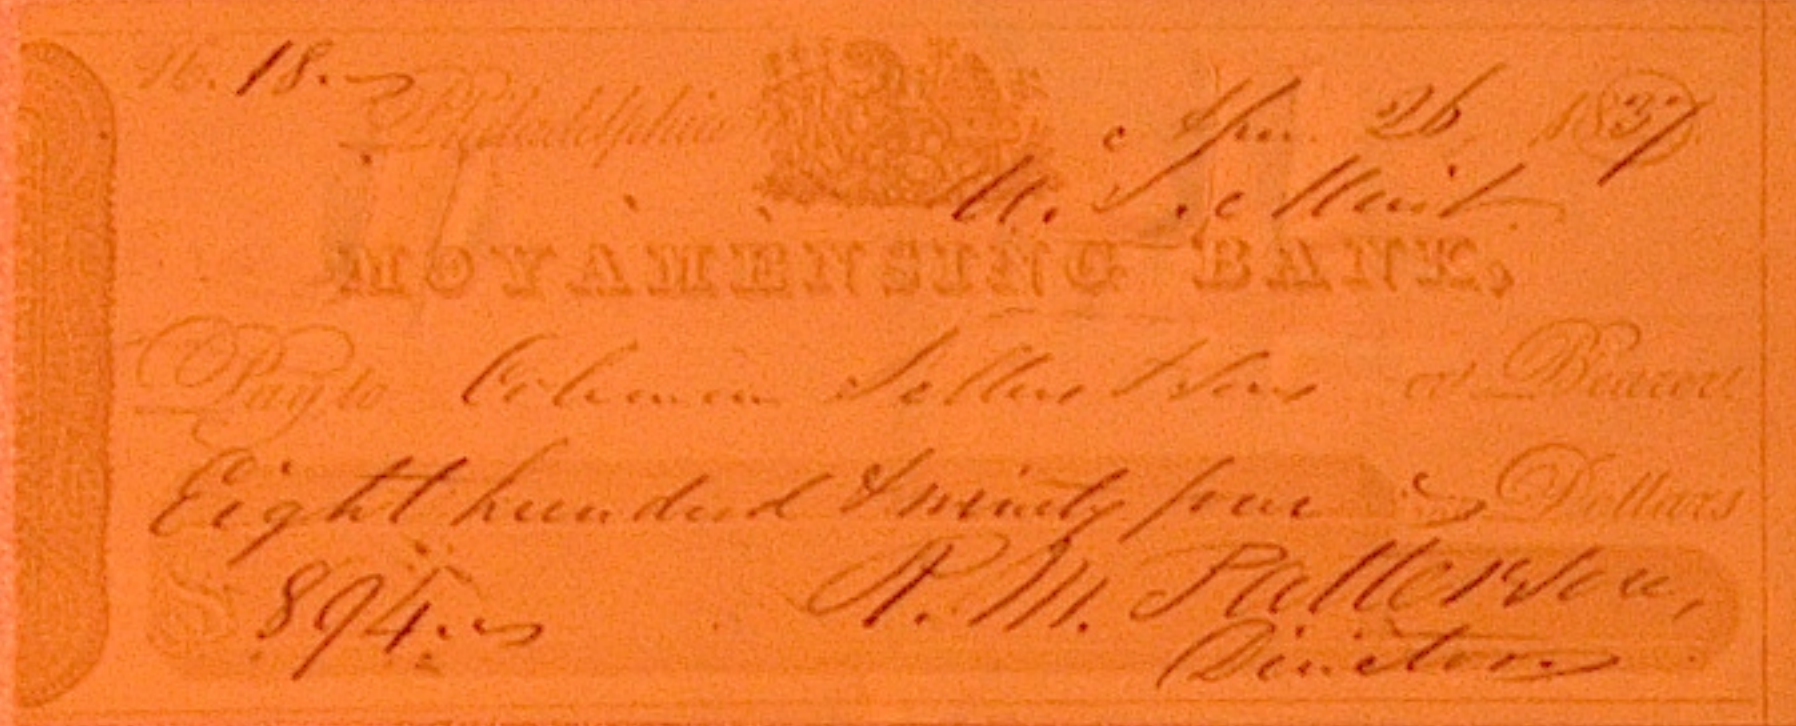 No. 18. Philadelphia Apr. 26 1837
U. S. Mint
MOYAMENSING BANK,
Pay to Coleman Sellers & Sons or Bearer
Eight hundred & ninety four Dollars
$ 894.
R. M. Patterson,
Director